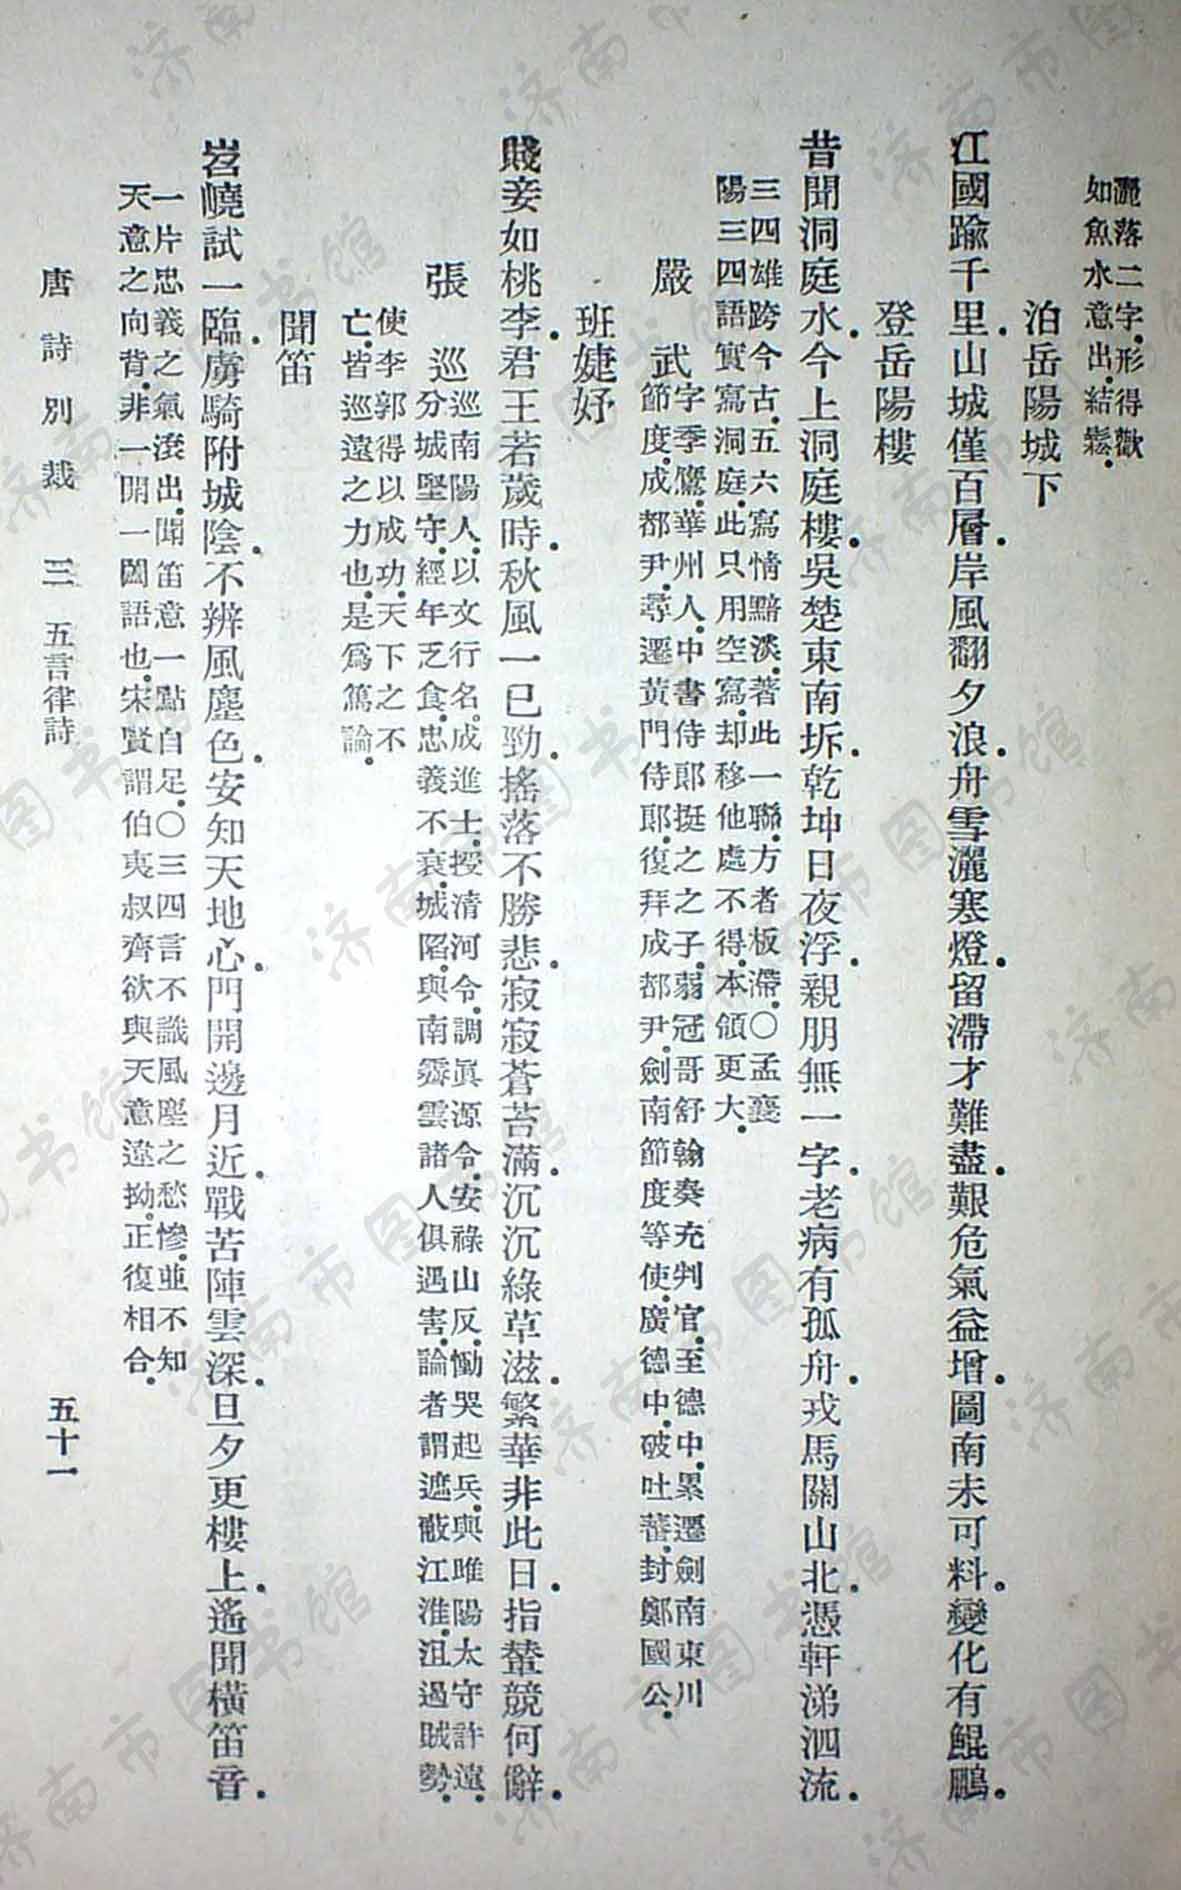 灑落二字.形得歡
如魚水意出.結鬆.
泊岳陽城下
江國踰千里.山城僅百層.岸風翻夕浪.舟雪灑寒燈.留滯才難盡.艱危氣益增.圖南未可料.變化有鯤鵬.
登岳陽樓
昔聞洞庭水.今上洞庭樓.吳楚東南坼.乾坤日夜浮.親朋無一字.老病有孤舟.戎馬關山北.憑軒涕泗流.
三四雄跨今古.五六寫情黯淡.著此一聯.方者板滯.○孟襄
陽三四語實寫洞庭.此只用空寫.却移他處不得.本領更大.
嚴武
字季鷹.華州人.中書侍郞挺之之子.弱冠哥舒翰奏充判官.至德中.累遷劍南東川
節度.成都尹.尋遷黃門侍郞.復拜成都尹.劍南節度等使.廣德中.破吐蕃.封鄭國公.
班婕妤
賤妾如桃李.君王若歲時.秋風一已勁.搖落不勝悲.寂寂蒼苔滿.沉沉綠草滋.繁華非此日.指輦競何辭.
張巡
巡南陽人.以文行名.成進士.授清河令.調眞源令.安祿山反.慟哭起兵.與睢陽太守許遠.
分城堅守.經年乏食.忠義不衰.城陷.與南霽雲諸人俱遇害.論者謂遮蔽江淮.沮遏賊勢.
使李郭得以成功.天下之不
亡.皆巡遠之力也.是爲篤論.
聞笛
岧嶢試一臨.虜騎附城陰.不辨風塵色.安知天地心.門開邊月近.戰苦陣雲深.旦夕更樓上.遙聞橫笛音.
一片忠義之氣滾出.聞笛意一點自足.○三四言不識風塵之愁慘.並不知
天意之向背.非一開一闔語也.宋賢謂伯夷叔齊欲與天意違拗.正復相合.
唐詩別裁 三 五言律詩 五十一
济南市图书馆